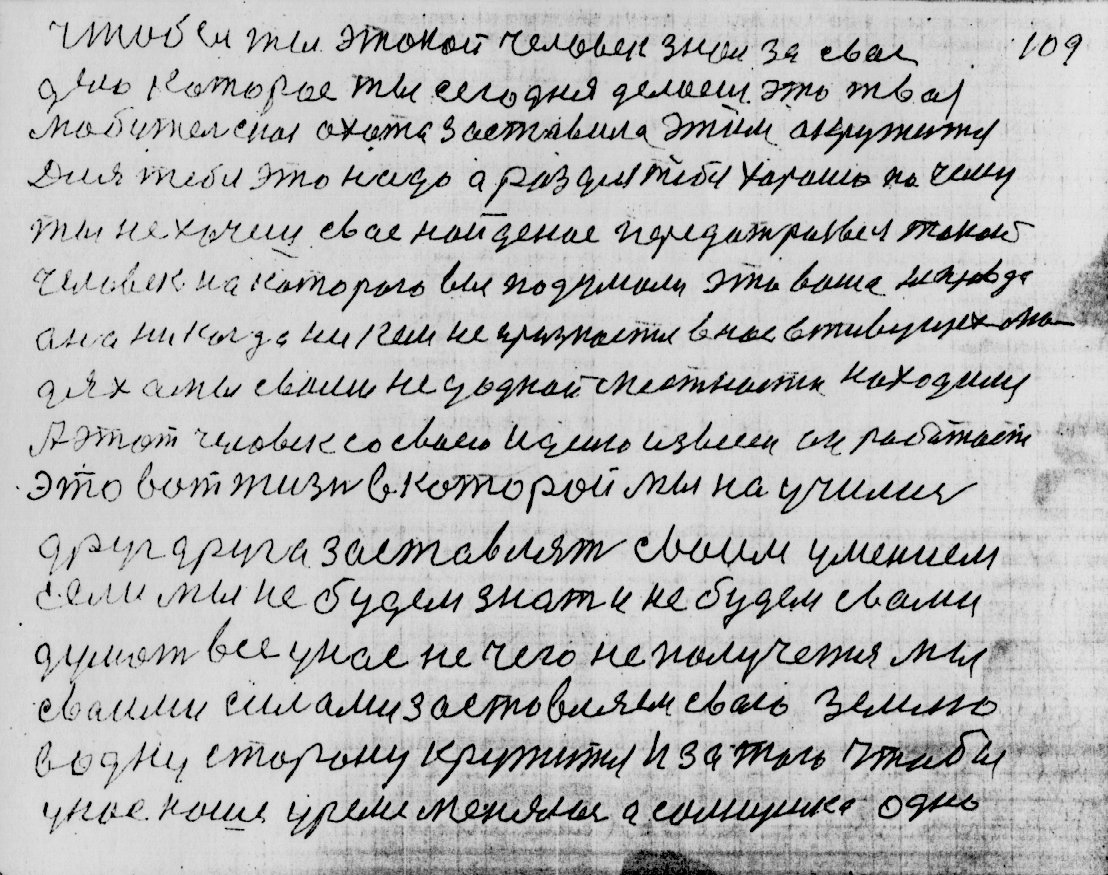 чтобы ты этакой человек знал за свае 109
дело которое ты сегодня делаеш это твоя
любительская охота заставила этим акружится
Для тебя это надо а раз для тебя харашо па чему
ты не хочеш свае найденае передат разве такой
человек на которого вы подумали это ваша
ана никагда ни кем не в нас в живущих лю
дях а мы сваих не у аднаей местнасти находили
А этот человек со сваею идеею извесен он работает
это вот жизн в которой мы на училися
друг друга заставлят сваим умением
если мы не будем знат и не будем свами
думат все у нас не чего не получется мы
сваими силами заставляем сваю землю
в одну сторону кружится и за того чтобы
у нас наше время менялас а солнушка одно